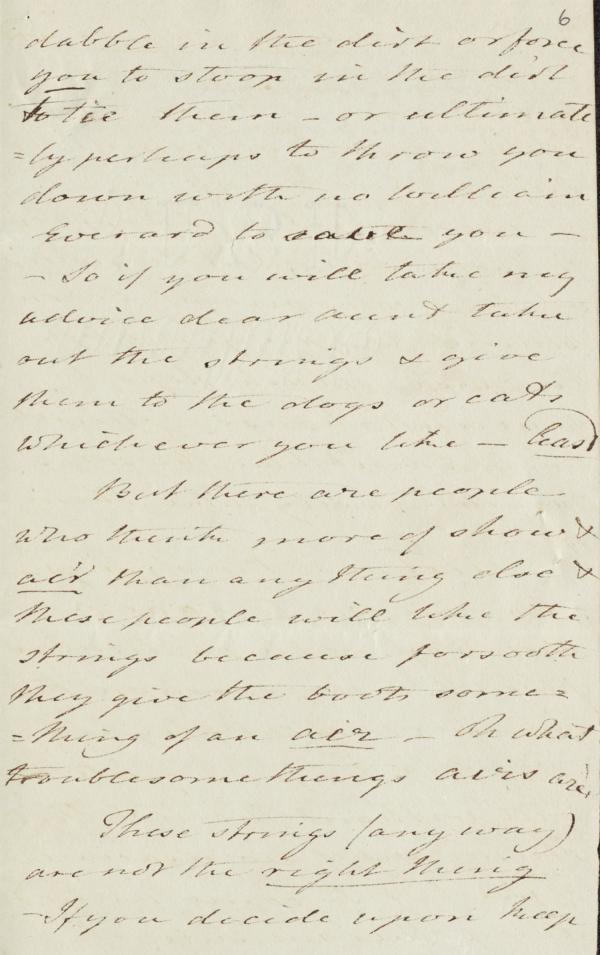 6
dabble in the dirt or force
you to stoop in the dirt
to tie them – or ultimate
=ly perhaps to throw you
down with no William
Everard to catch you –
– So if you will take my
advice dear aunt take
out the strings & give
them to the dogs or cats
whichever you like –
But there are people
who think more of show &
air than any thing else &
these people will like the
strings because forsooth
they give the boots some=
=thing of an air – Oh what
troublesome things airs are!
These strings (any way)
are not the right thing
– If you decide upon keep